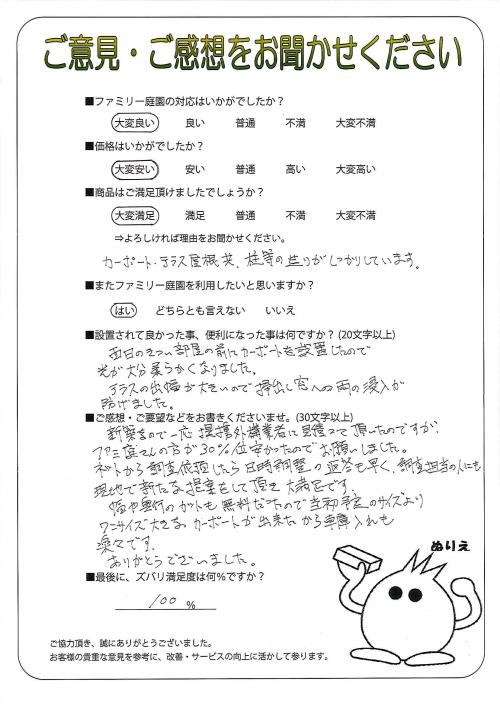 ご意見・ご感想をお聞かせください
■ファミリー庭園の対応はいかがでしたか？
大変良い 良い 普通 不満 大変不満
■価格はいかがでしたか？
大変安い 安い 普通 高い 大変高い
■商品はご満足頂けましたでしょうか？
大変満足 満足 普通 不満 大変不満
⇒よろしければ理由をお聞かせください。
カーポート・テラス屋根共、柱等の造りがしっかりしています。
■またファミリー庭園を利用したいと思いますか？
はい どちらとも言えない いいえ
■設置されて良かった事、便利になった事は何ですか？(20文字以上)
西日のきつい部屋の前にカーポートを設置したので
光が大分柔らかくなりました。
テラスの出幅が大きいので掃出し窓への雨の浸入が
防げました。
■ご感想・ご要望などをお書きくださいませ。(30文字以上)
新築なので一応提携外構業者に見積って頂いたのですが、
ファミ庭さんの方が30%位安かったのでお願いしました。
ネットから調査依頼したら日時調整の返答も早く、調査担当の人にも
現地で新たな提案をして頂き大満足です。
幅や奥行のカットも無料だったので当初予定のサイズより
ワンサイズ大きなカーポートが出来たから車庫入れも
楽々です。
ありがとうございました。
■最後に、ズバリ満足度は何％ですか？
100 %
ぬりえ
ご協力頂き、誠にありがとうございました。
お客様の貴重な意見を参考に、改善・サービスの向上に活かして参ります。